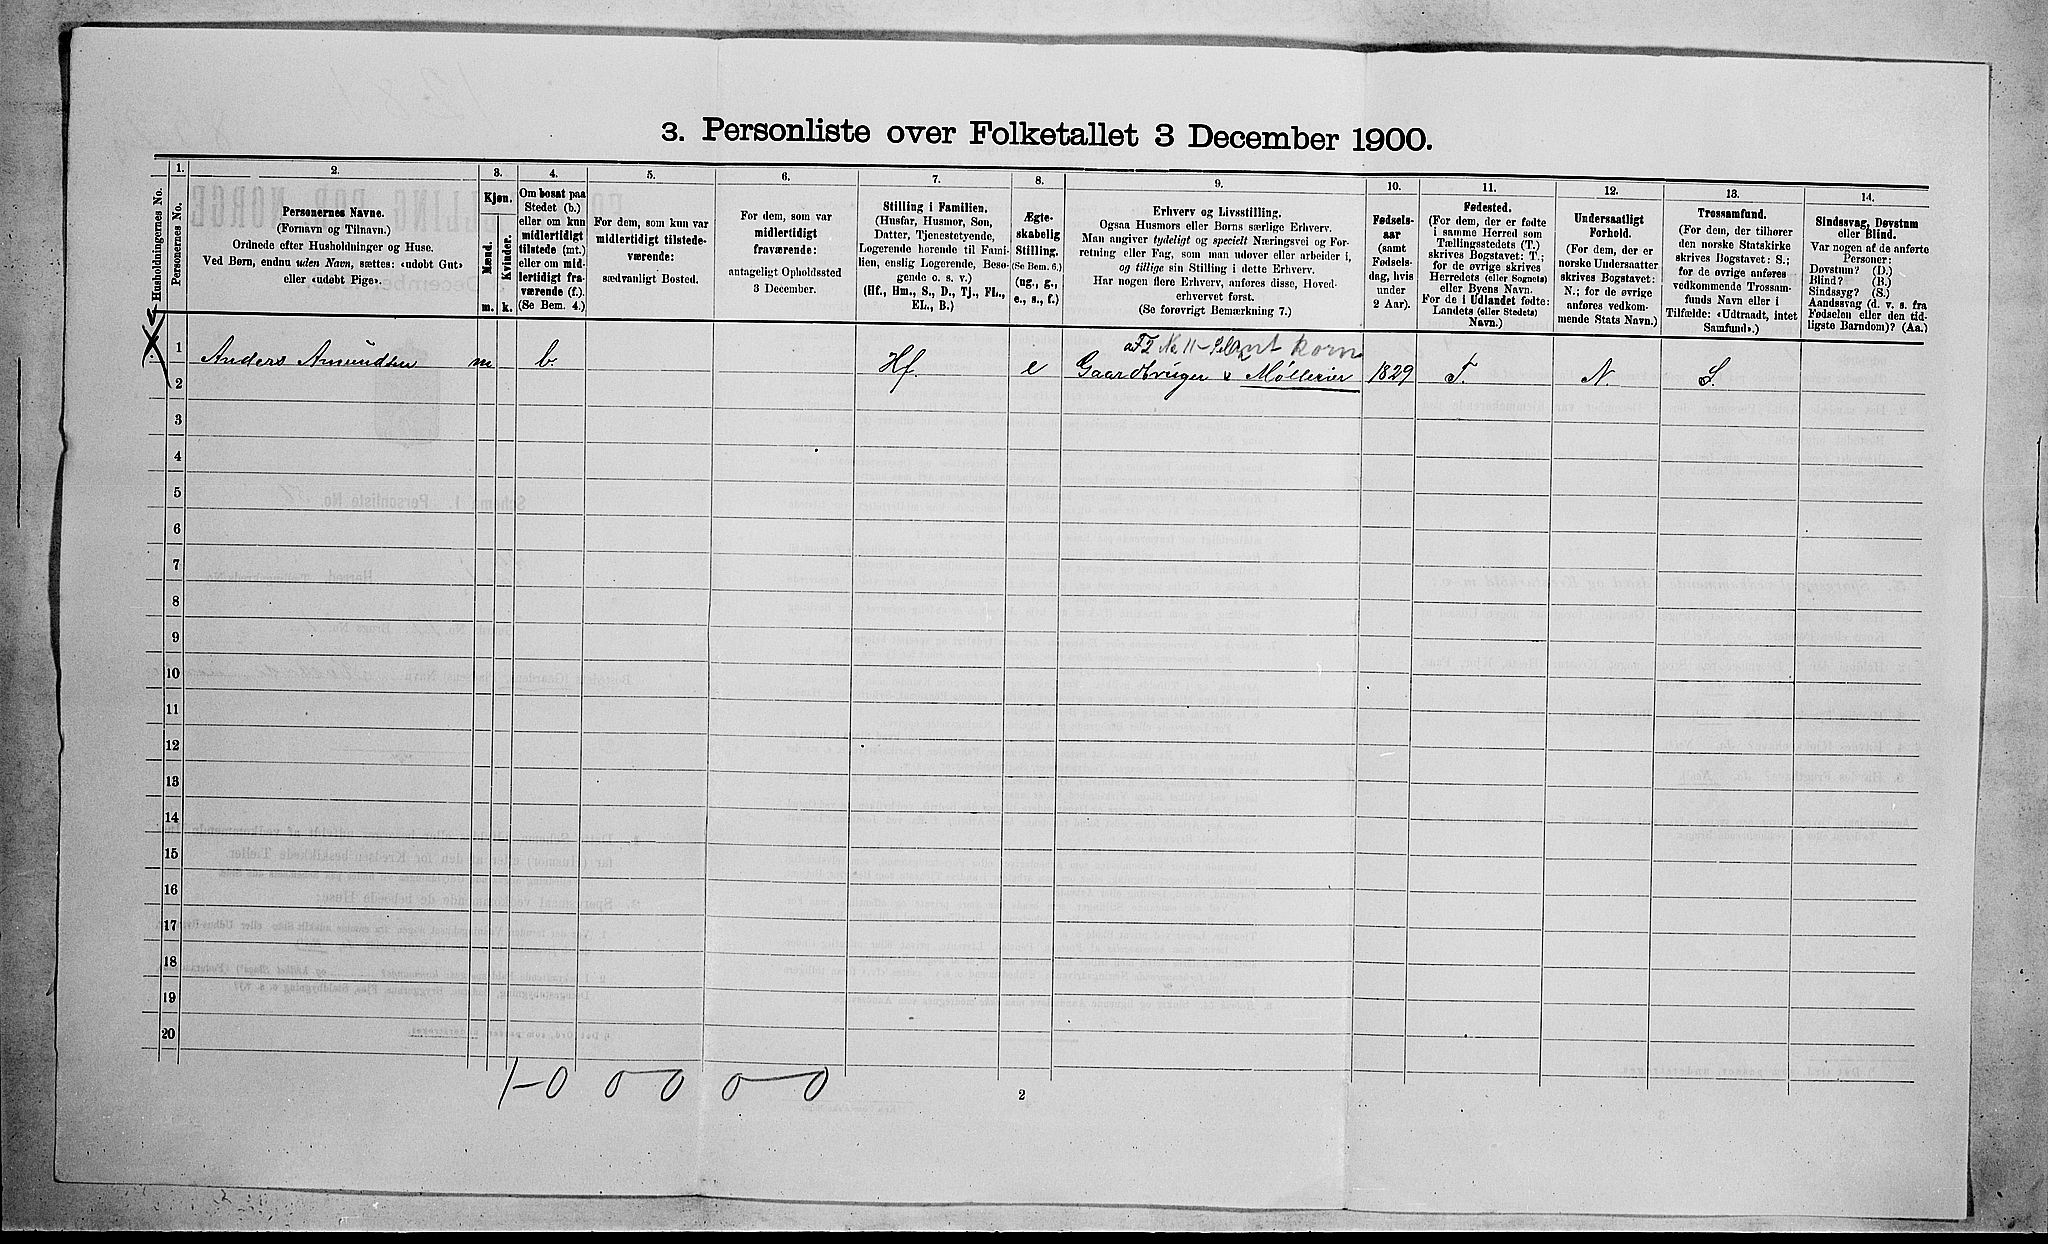 3. Personliste over Folketallet 3 December 1900.
Husholdningernes No.
1.
Personernes No.
2.
Personernes Navne.
(Fornavn og Tilnavn.)
Ordnede efter Husholdninger og Huse.
Ved Børn, endnu uden Navn, sættes: «udøbt Gut»
eller «udøbt Pige».
3.
Kjøn.
Mænd.
Kvinder.
m.
k.
4.
Om bosat paa
Stedet (b.)
eller om kun
midlertidigt
tilstede (mt.)
eller om mid-
lertidigt fra-
værende (f.).
(Se Bem. 4.)
5.
For dem, som kun var
midlertidigt tilstede-
værende:
sædvanligt Bosted.
6.
For dem, som var
midlertidigt
fraværende:
antageligt Opholdssted
3 December.
7.
Stilling i Familien.
(Husfar, Husmor, Søn,
Datter, Tjenestetyende,
Logerende hørende til Fami-
lien, enslig Logerende, Besø-
gende o. s. v.)
(Hf., Hm., S., D., Tj., FL.,
EL., B.)
8.
Ægte-
skabelig
Stilling.
(Se Bem. 6.)
(ug., g.,
e., s., f.)
9.
Erhverv og Livsstilling.
Ogsaa Husmors eller Børns særlige Erhverv.
Man angiver tydeligt og specielt Næringsvei og For-
retning eller Fag, som man udøver eller arbeider i,
og tillige sin Stilling i dette Erhverv.
Har nogen flere Erhverv, anføres disse, Hoved-
erhvervet først.
(Se forøvrigt Bemærkning 7.)
10.
Fødsels-
aar
(samt
Fødsels-
dag, hvis
under
2 Aar).
11.
Fødested.
(For dem, der er fødte
i samme Herred som
Tællingsstedets (T.)
skrives Bogstavet: T.;
for de øvrige skrives
Herredets (eller Sognets)
eller Byens Navn.
For de i Udlandet fødte:
Landets (eller Stedets)
Navn.)
12.
Undersaatligt
Forhold.
(For dem, der er
norske Undersaatter
skrives Bogstavet:
N.; for de øvrige
anføres vedkom-
mende Stats Navn.)
13.
Trossamfund.
(For dem, der tilhører
den norske Statskirke
skrives Bogstavet: S.;
for de øvrige anføres
vedkommende Trossam-
funds Navn eller i
Tilfælde: «Udtraadt, intet
Samfund».)
14.
Sindssvag, Døvstum
eller Blind.
Var nogen af de anførte
Personer:
Døvstum? (D.)
Blind? (B.)
Sindssyg? (S.)
Aandssvag (d. v. s. fra
Fødselen eller den tid-
ligste Barndom)? (Aa.)
korn
1 Anders Amundsen m b. Hf. e Gaardbruger & Mølleeier 1829 T. N. S.
2
3
4
5
6
7
8
9
10
11
12
13
14
15
16
17
18
19
20
1-0 0 0 0-0
2